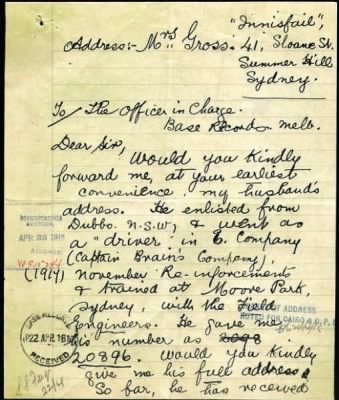 "Innisfail",
Address:- Mrs Gross. 41, Sloane St.
Summer Hill
Sydney.
To/ The Officer in Charge.
Base Records. Melb.
Dear Sir, Would you kindly
forward me, at your earliest
convenience my husband's
address. He enlisted from
Dubbo. N.S.W, & went as
a "driver" in E. Company
(Captain Brain's Company),
(1917) November Re-inforcements
& trained at Moore Park,
Sydney, with the Field
Engineers. He gave me
his number as 2098
20896. Would you kindly
give me his full address.
So far, he has received
APR 23 1918
BASE RECORDS
22 APR 1918
RECEIVED
OF ADDRESS
NOTED FOR CAIRO
22/4